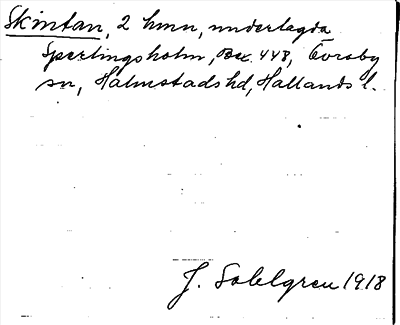 Skintan, 2 hmn, underlagda
Sperlingsholm, Bex. 448, Övraby
sn, Halmstads hd, Hallands l.
J. Sahlgren 1918